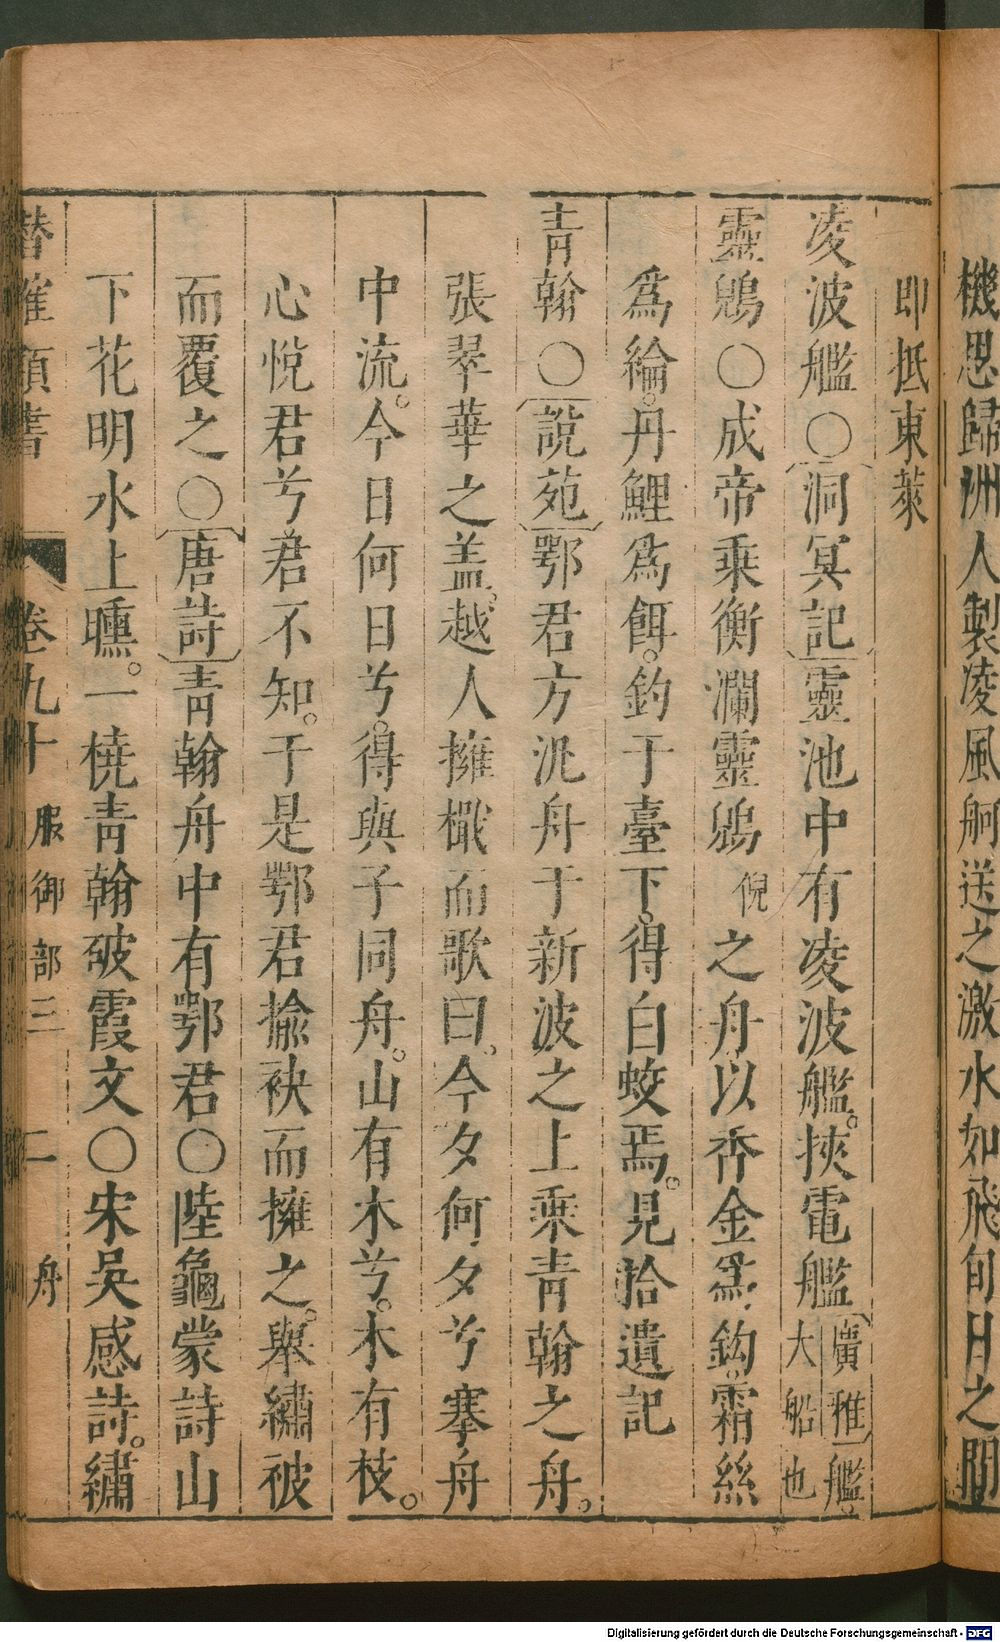 機思歸洲人製凌風舸送之激水如飛旬日之間
即抵東萊
凌波艦○〔洞冥記〕靈池中有凌波艦。挾電艦〔廣雅〕艦。大船也
靈鶂○成帝乘衡瀾靈鶂倪之舟以香金爲鈎。霜絲
爲綸。丹鯉爲餌。釣于臺下。得白蛟焉。見拾遺記
青翰○〔說苑〕鄂君方汎舟于新波之上乘青翰之舟。
張翠華之盖。越人擁檝而歌曰。今夕何夕兮搴舟
中流。今日何日兮。得與子同舟。山有木兮。木有枝。
心悅君兮君不知。于是鄂君揄袂而擁之。舉繡被
而覆之○〔唐詩〕青翰舟中有鄂君○陸龜蒙詩山
下花明水上曛。一橈青翰破霞文○宋吳感詩。繡
潛確類書 卷九十 服御部三 二 舟
Digitalisierung gefördert durch die Deutsche Forschungsgemeinschaft - DFG